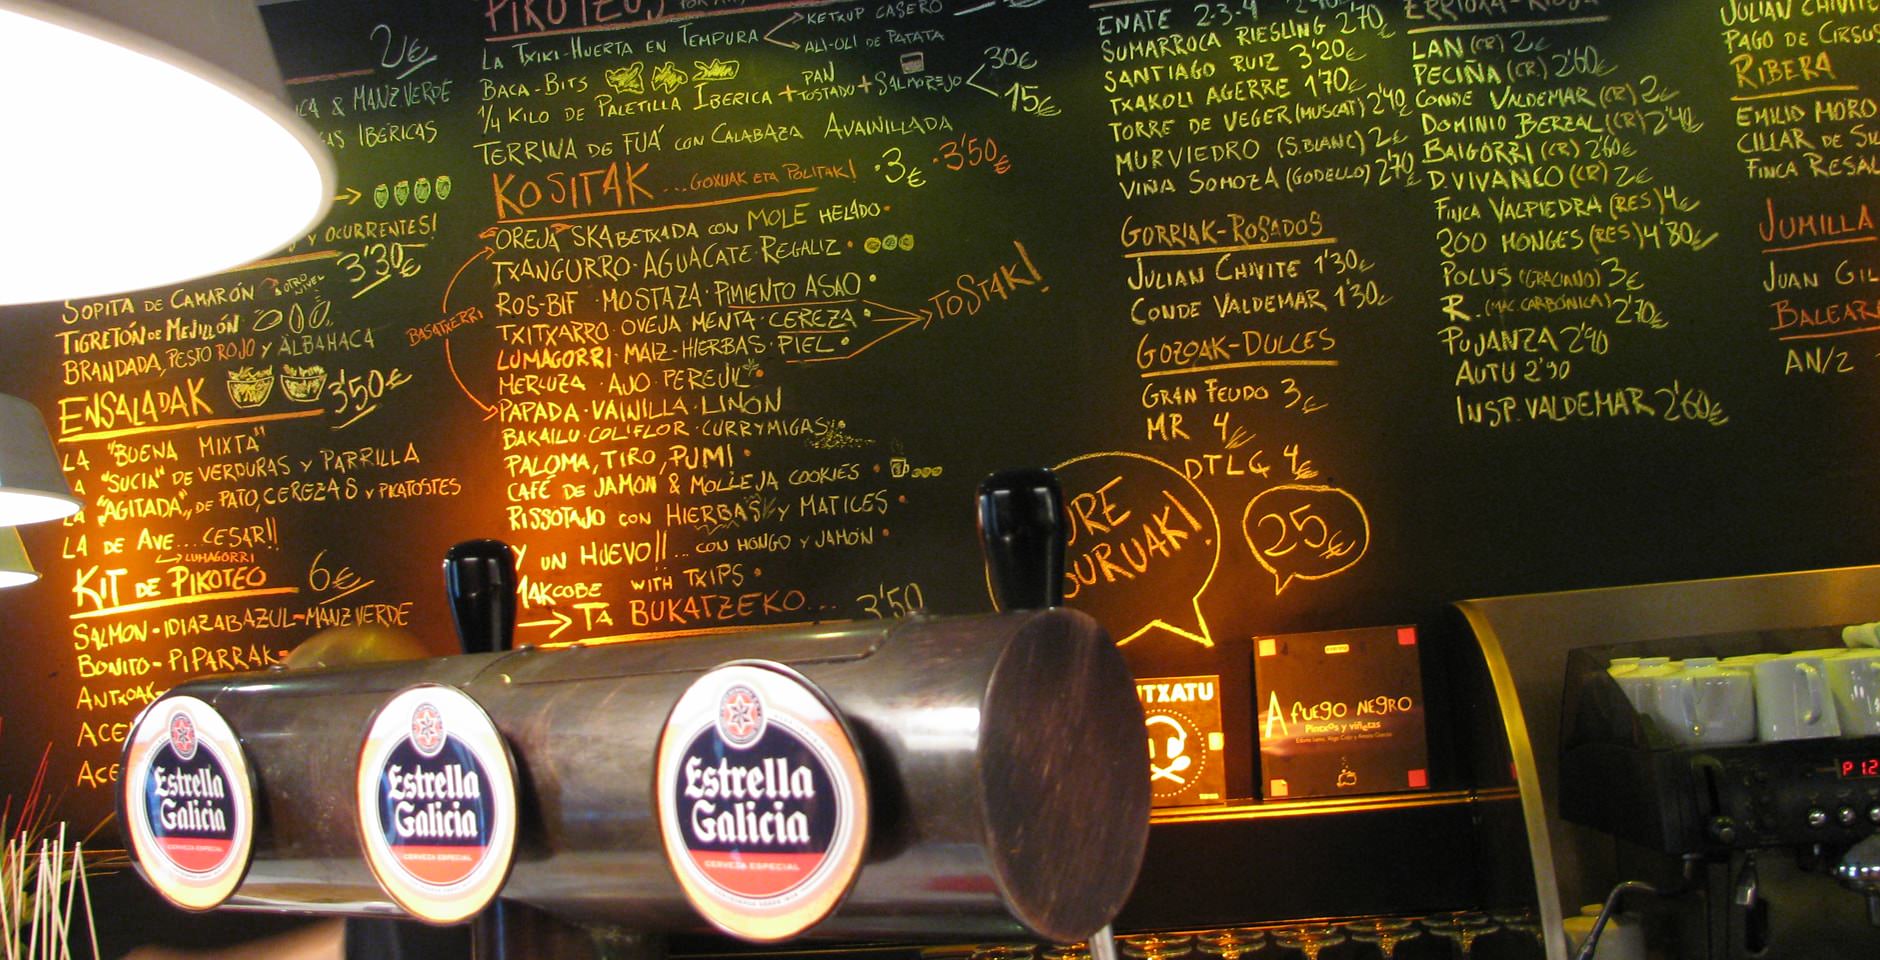 2€
& MANZ VERDE
IBERICAS
Y OCURRENTES!
3'30€
SOPITA DE CAMARÓN
TIGRETÓN DE MEJILLÓN
BRANDADA, PESTO ROJO Y ALBAHACA
ENSALADAK 3'50€
LA "BUENA MIXTA"
"SUCIA" DE VERDURAS Y PARRILLA
LA "AGITADA", DE PATO, CEREZAS Y PIKATOSTES
LA DE AVE....CESAR!!
LUMAGORRI
KIT DE PIKOTEO 6€
SALMON-IDIAZABAZUL-MANZ VERDE
BONITO-PIPARRAK-
ANTXOAK-
PIKOTEOS
LA TXIKI-HUERTA EN TEMPURA
KETXUP CASERO
ALI-OLI DE PATATA
BACA-BITS
1/4 KILO DE PALETILLA IBERICA + PAN TOSTADO + SALMOREJO
30€
15€
TERRINA DE FUÁ CON CALABAZA AVAINILLADA
KOSITAK ...GOXUAK ETA POLITAK! ·3€ ·3'50€
OREJA SKABETXADA CON MOLE HELADO·
TXANGURRO·AGUACATE·REGALIZ·
ROS-BIF·MOSTAZA·PIMIENTO ASAO·
TXITXARRO·OVEJA MENTA·CEREZA·
LUMAGORRI·MAIZ-HIERBAS·PIEL·
MERLUZA·AJO·PEREJIL·
PAPADA·VAINILLA·LIMÓN
BAKAILU·COLIFLOR·CURRYMIGAS
PALOMA, TIRO, PUM!·
CAFÉ DE JAMON & MOLLEJA COOKIES·
RISSOTAJO CON HIERBAS Y MATICES·
Y UN HUEVO!!...CON HONGO Y JAMÓN·
MAKCOBE WITH TXIPS·
TA BUKATZEKO... 3'50
BASATXERRI
TOSTAK!
ENATE 2·3·4
SUMARROCA RIESLING 2'70
SANTIAGO RUIZ 3'20€
TXAKOLI AGERRE 1'70€
TORRE DE VEGER (MUSCAT) 2'40€
MURVIEDRO (S.BLANC) 2€
VIÑA SOMOZA (GODELLO) 2'70
GORRIAK-ROSADOS
JULIAN CHIVITE 1'30€
CONDE VALDEMAR 1'30€
GOZOAK-DULCES
GRAN FEUDO 3€
MR 4€
DTLG 4€
25€
ERRIOXA-RIOJA
LAN (CR) 2€
PECIÑA (CR.) 2'60€
CONDE VALDEMAR (CR) 2€
DOMINIO BERZAL (CR) 2'40€
BAIGORRI (CR) 2'60€
D.VIVANCO (CR) 2€
FINCA VALPIEDRA (RES) 4€
200 MONGES (RES.) 4'80€
POLUS (GRACIANO) 3€
R. (MAC. CARBÓNICA) 2'70€
PUJANZA 2'90
AUTU 2'90
INSP. VALDEMAR 2'60€
JULIAN CHIVITE
PAGO DE CIRSUS
RIBERA
EMILIO MORO
CILLAR DE
FINCA
JUMILLA
JUAN GIL
BALEAR
AN/2
A FUEGO NEGRO
Pintxos y viñetas
P 12
Estrella Galicia
CERVEZA ESPECIAL
Estrella Galicia
CERVEZA ESPECIAL
Estrella Galicia
CERVEZA ESPECIAL